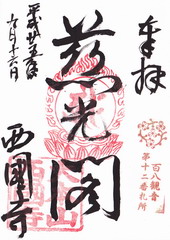 奉拝
百八観音
第十二番札所
慈光閣
平成廿五年
月十六日
西國寺